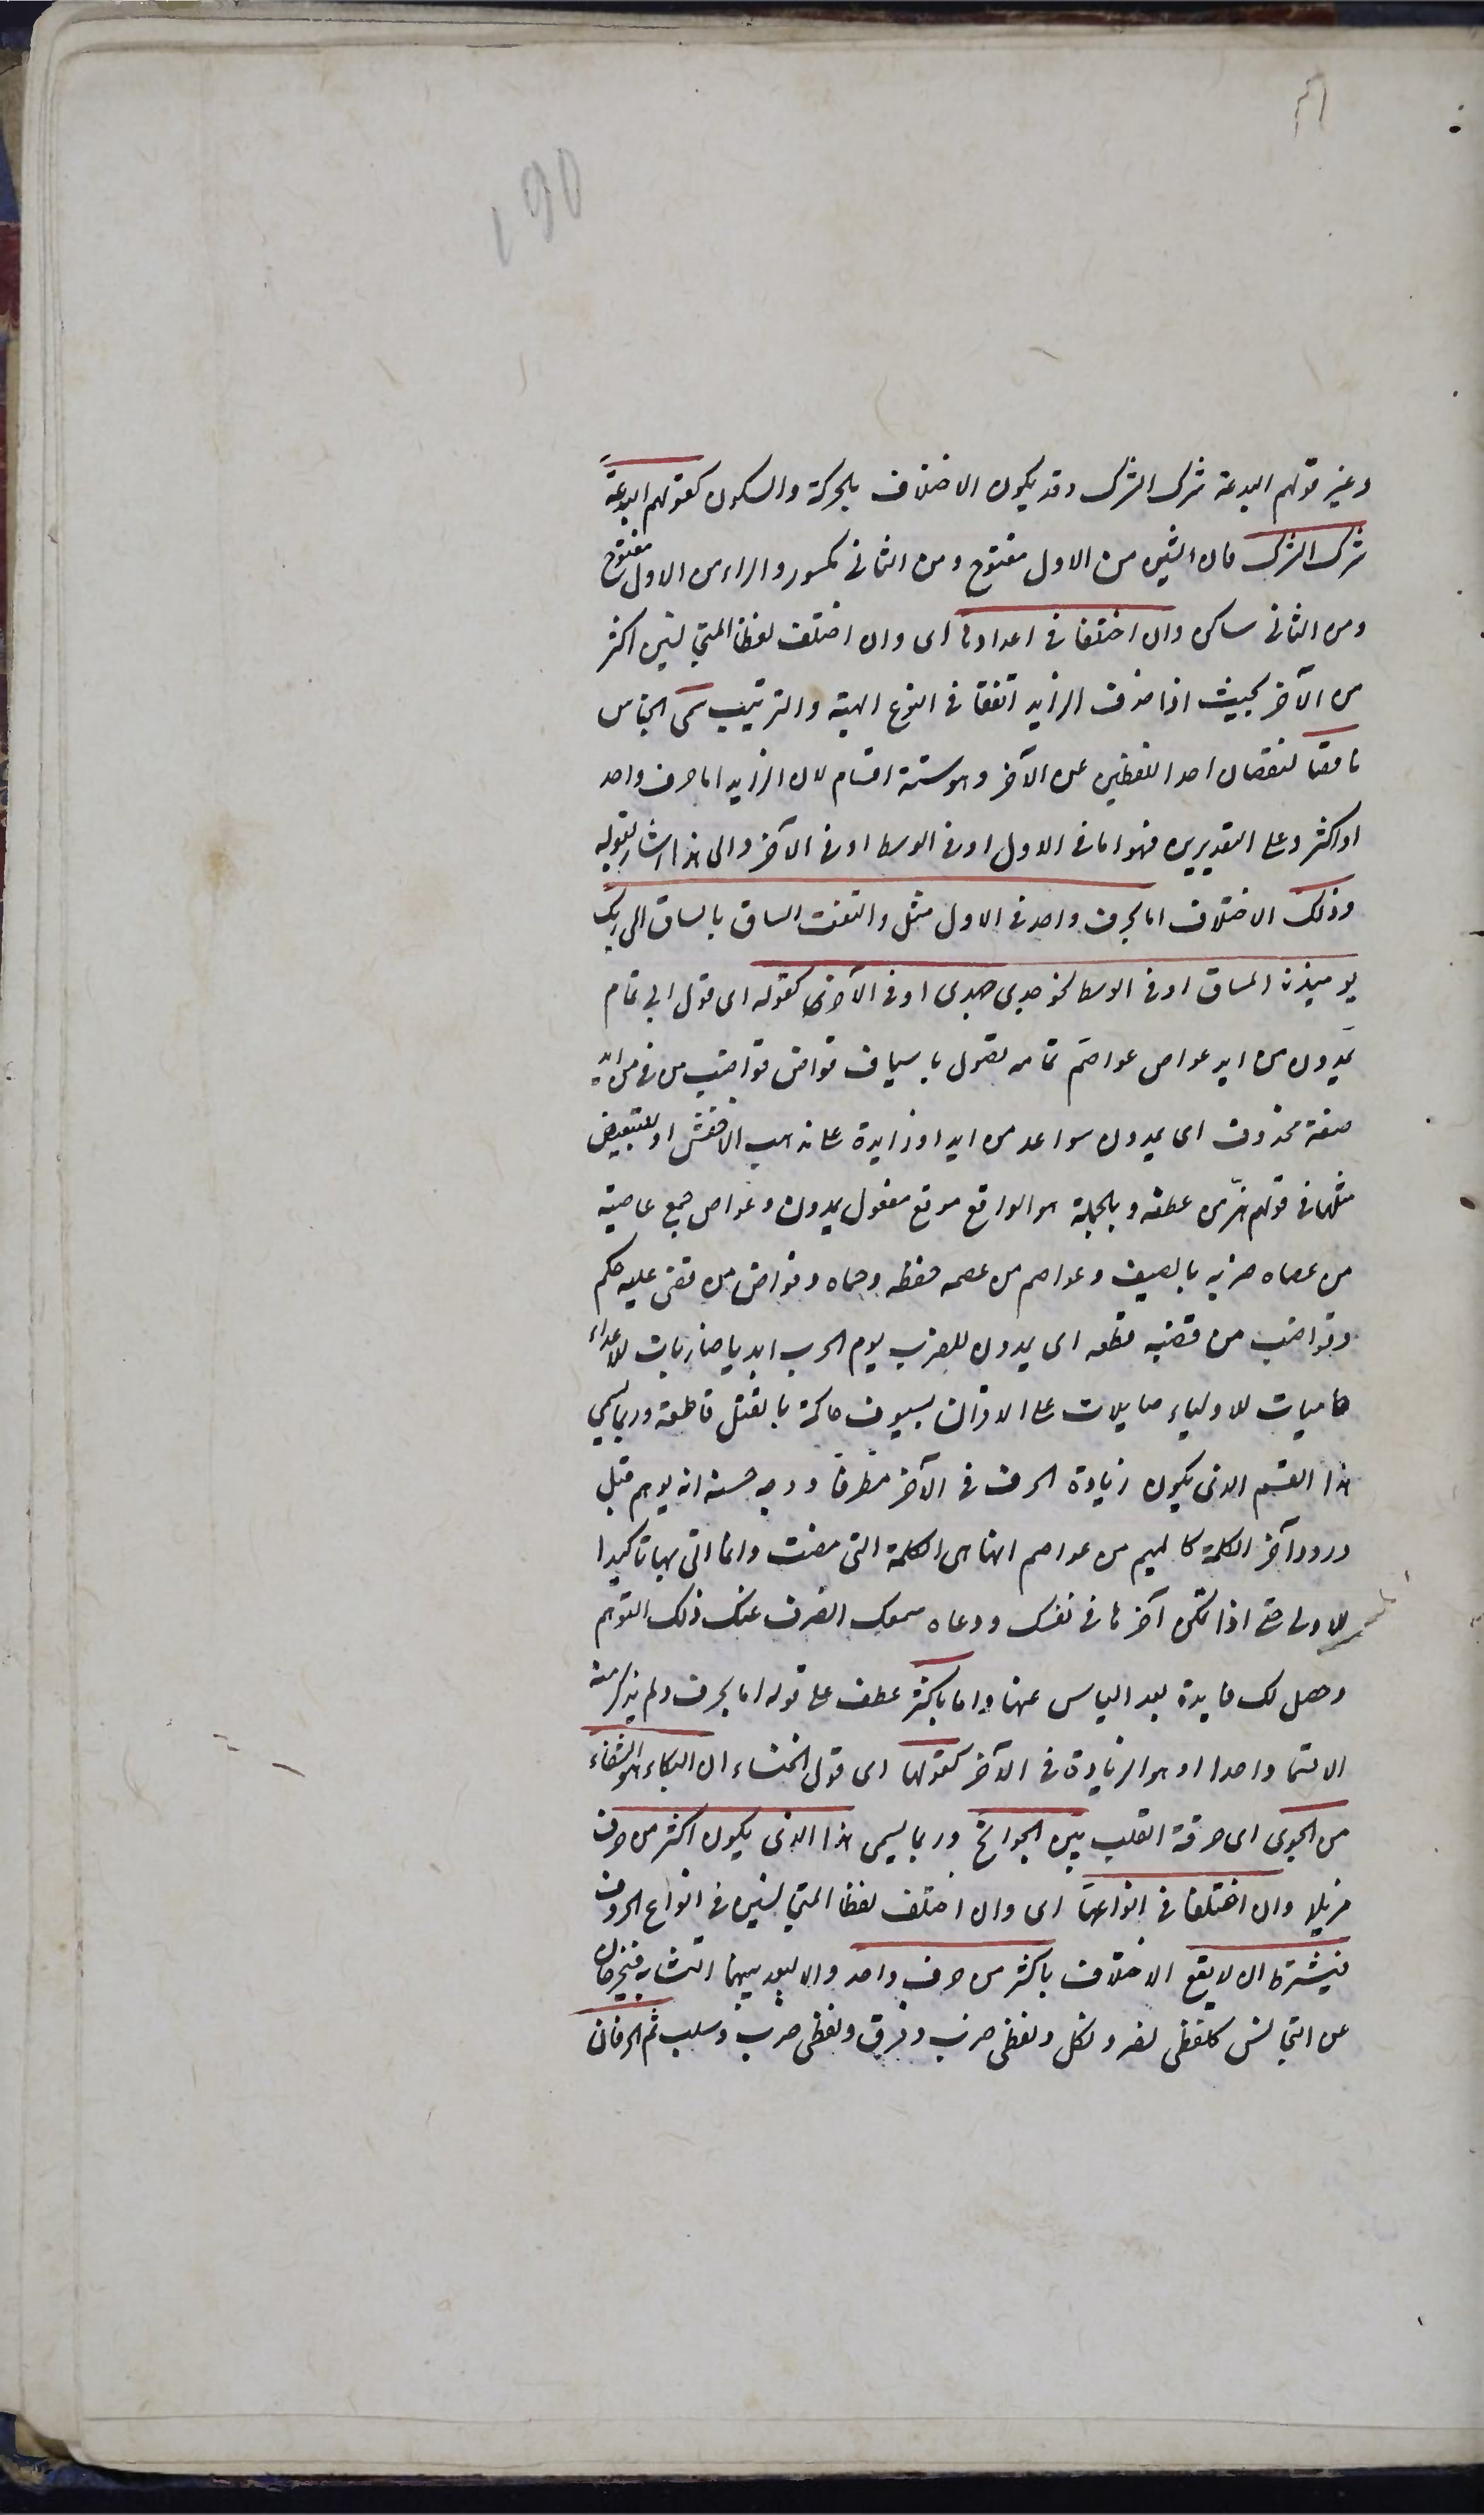 وغير قولهم البدعة شرك الشرك وقد يكون الاختلاف بالحركة والسكون كقولهم البدعة
شرك الشرك فان الشين من الاول مفتوح ومن الثانى مكسور والراء من الاول مفتوح
ومن الثانى ساكن وان اختلفا فى اعدادها اى وان اختلف لفظا المتجانسين اكثر
من الآخر بحيث اذا حذف الزايد اتفقا فى النوع الهيئة والترتيب سمى الجناس
ناقصا لنقصان احد اللفظين عن الآخر وهو ستة اقسام لان الزايد اما حرف واحد
او اكثر وعلى التقديرين فهو اما فى الاول او فى الوسط او فى الآخر والى هذا اشار بقوله
وذلك الاختلاف اما بحرف واحد فى الاول مثل والتفت الساق بالساق الى ربك
يوميذن المساق او فى الوسط نحو جدى جهدى او فى الآخر كقوله اى قول ابى تمام
يمدون من ايد عواص عواصم تمامه تصول باسياف قواض قواضب من فى من ايد
صفة محذوف اى يمدون سواعد من ايد او زايدة على مذهب الاخفش او للتبعيض
مثلها فى قولهم هز من عطفه وبالجملة هو الواقع موقع مفعول يمدون وعواص جمع عاصية
من عصاه ضربه بالسيف وعواصم من عصمه حفظه وحماه وقواض من قضى عليه حكم
وقواضب من قضبه قطعه اى يمدون للضرب يوم الحرب ايديا ضاربات للاعداء
حاميات للاولياء صايلات على الاقران بسيوف حاكمة بالقتل قاطعة وربما يسمى
هذا القسم الذى يكون زيادة الحرف فى الآخر مطرفا ووجه حسنه انه يوهم قبل
ورود آخر الكلمة كالميم من عواصم انها هى الكلمة التى مضت وانما اتى بها تاكيدا
للاولى حتى اذا تمكن آخرها فى نفسك ووعاه سمعك انصرف عنك ذلك التوهم
وحصل لك فايدة بعد الياس عنها واما باكثر عطف على قوله اما بحرف ولم يذكر منه
الا قسما واحدا او هو الزيادة فى الآخر كقولها اى قول الخنساء ان البكاء هو الشفاء
من الجوى اى حرقة القلب بين الجوانح وربما يسمى هذا الذى يكون اكثر من حرف
مزيلا وان اختلفا فى انواعها اى وان اختلف لفظا المتجانسين فى انواع الحروف
فيشترط ان لا يقع الاختلاف باكثر من حرف واحد والا لبعد بينهما التشابه فيخرجان
عن التجانس كلفظى نصر ونكل ولفظى ضرب وفرق ولفظى ضرب وسلب ثم الحرفان